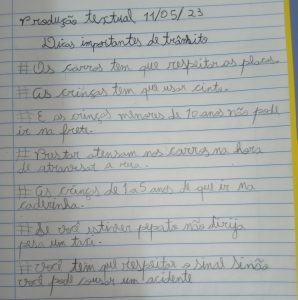 Produção textual 11/05/23
Dicas importantes de trânsito
# Os carros tem que respeitar as placas.
# As crinças tem que usar cinto.
# E as crinços menores de 10 anos não pode
ir na frete.
# Prestar atensam nos carros na hora
de atravesar a rua.
# As crinças de 1 a 5 anos de que ir na
caderinha.
# Se você estiver não dirija
um taxi.
# você tem que respeitar o sinal sinão
você pode causar um acidente